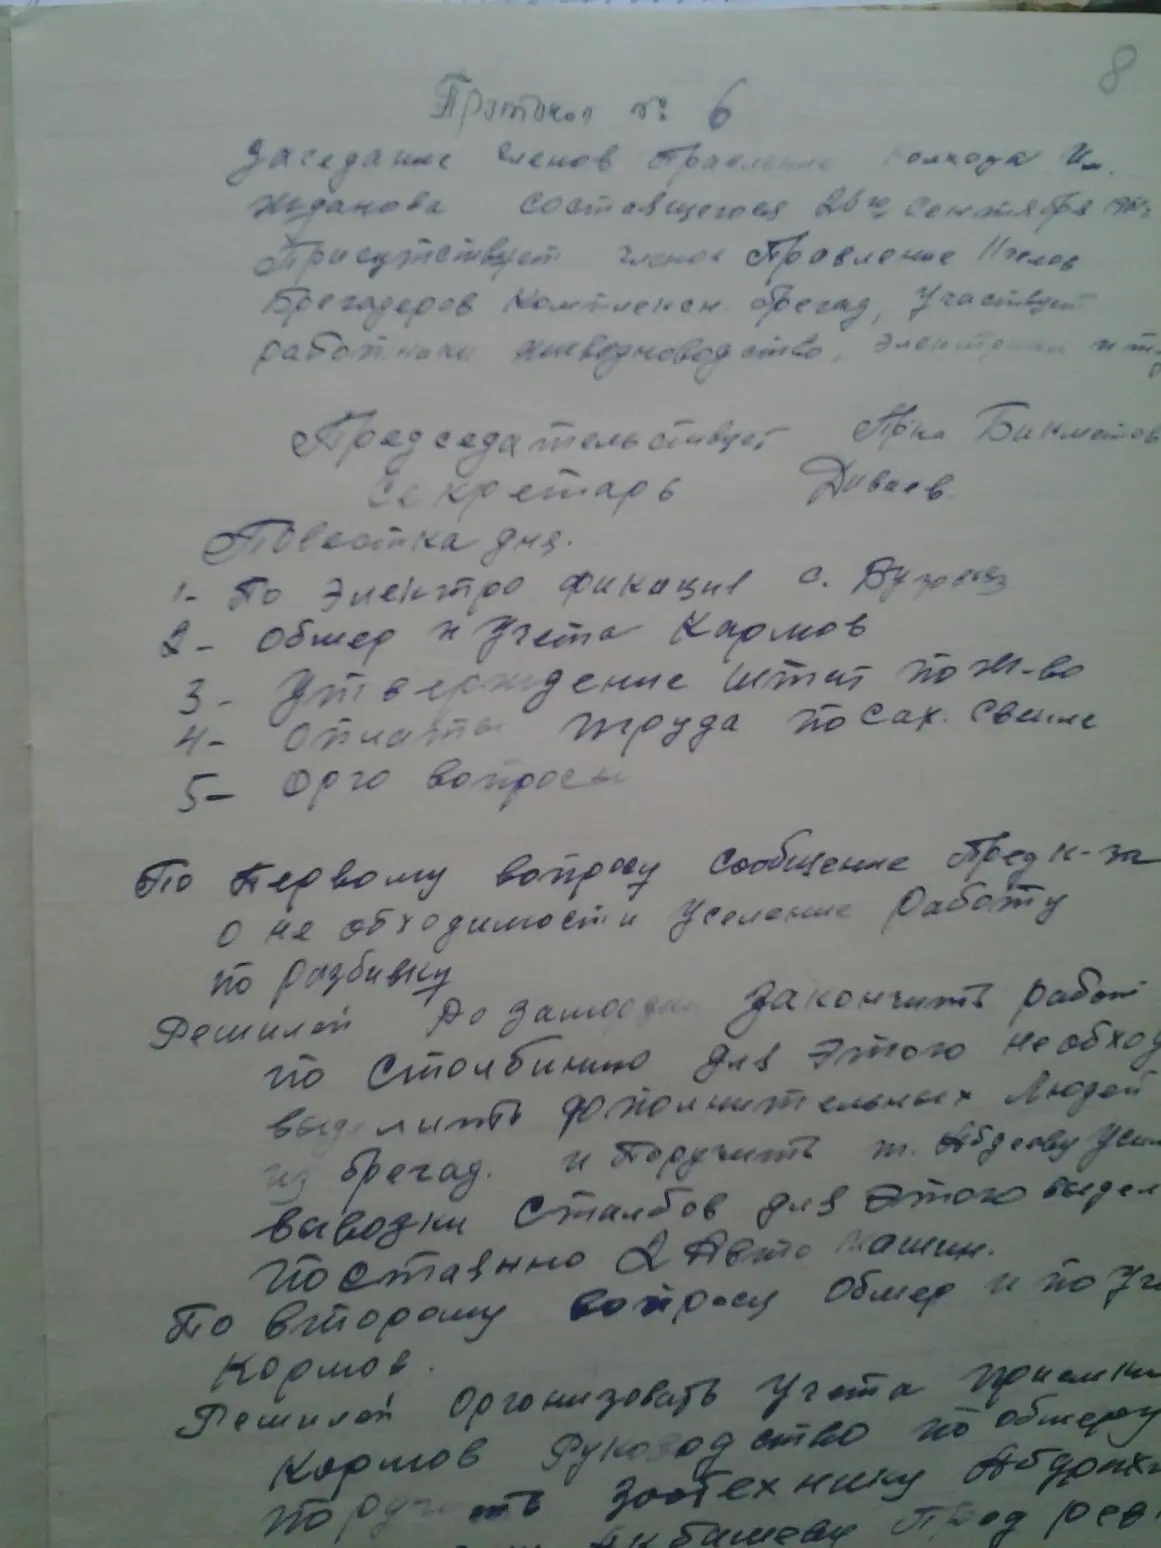 8
Протокол № 6
Заседание членов Правление колхоза Им.
Жданова состоявщегося 26го сентября
Присутствует членов Правление 11 челов
Брегадеров Комплексн. брегад, Участвует
работники живодноводство, электрики и т
Председательствует
Секретарь Диваев.
Повестка дня.
1- По Электро фикация с.
2- Обмер и Учета Кормов
3- Утверждение штат по Ж-во
4- Оплаты труда по сах. свекле
5- Орго вопросы
По Первому вопросу сообщение Пред к-за
о не обходимости уселение работу
по разбивку
Решилой До заморозки закончить работ
по столбинию для этого необход
выделить дополнительных Людей
из брегад. и поручить т. Абдееву
выводки столбов для этого выдел
поставнно 2 Авто машин.
По второму вопросу Обмер и по Уче
Кормов.
Решилой организовать Учета приемки
Кормов Руководство по обмеру
поручить зоотехнику
Акбашеву Пред рев